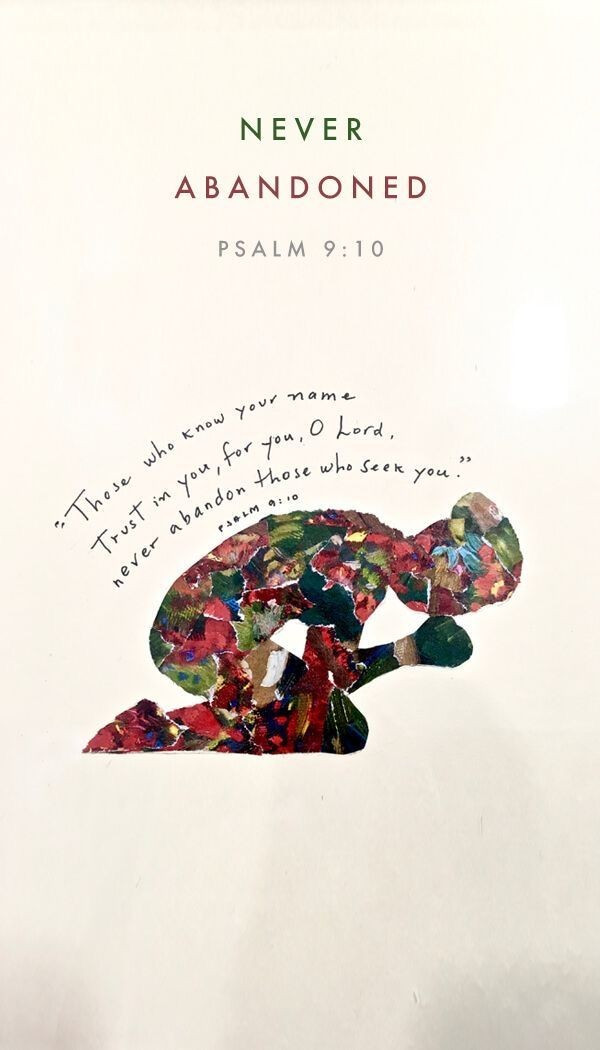 NEVER
ABANDONED
PSALM 9:10
"Those who know your name
Trust in you, for you, O Lord,
never abandon those who seek you."
PSALM 9:10